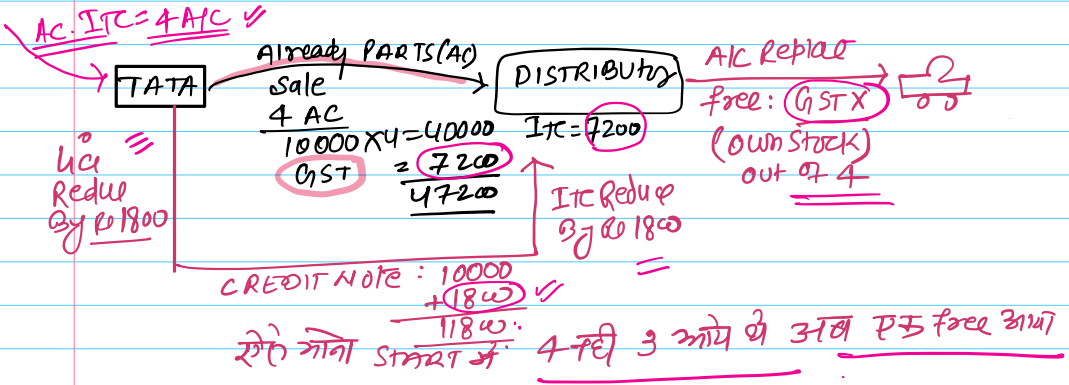 AC. ITC = 4 A/C
TATA
Already PARTS(AC)
Sale
4 AC
10000 X 4 = 40000
GST = 7200
47200
DISTRIBUTOR
ITC = 7200
A/C Replace
free: GST X
(own stock)
out of 4
Redue
By Re 1800
ITC Redue
By Re 1800
CREDIT NOTE : 10000
+1800
11800.
ऐसे मानो START में: 4 नही 3 आये थे अब एक free आया